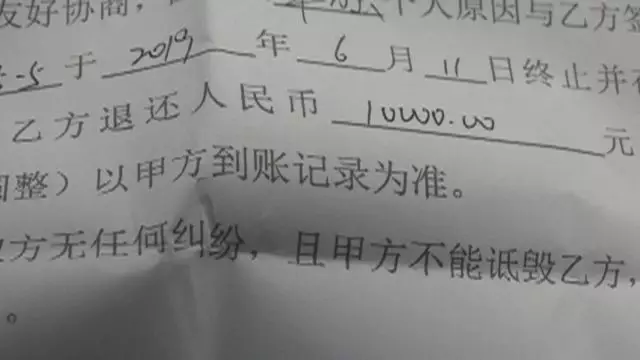 友好协商，
个人原因与乙方签
-5于2019年6月11日终止并
乙方退还人民币10000.00元
调整）以甲方到账记录为准。
方无任何纠纷，且甲方不能诋毁乙方，
。